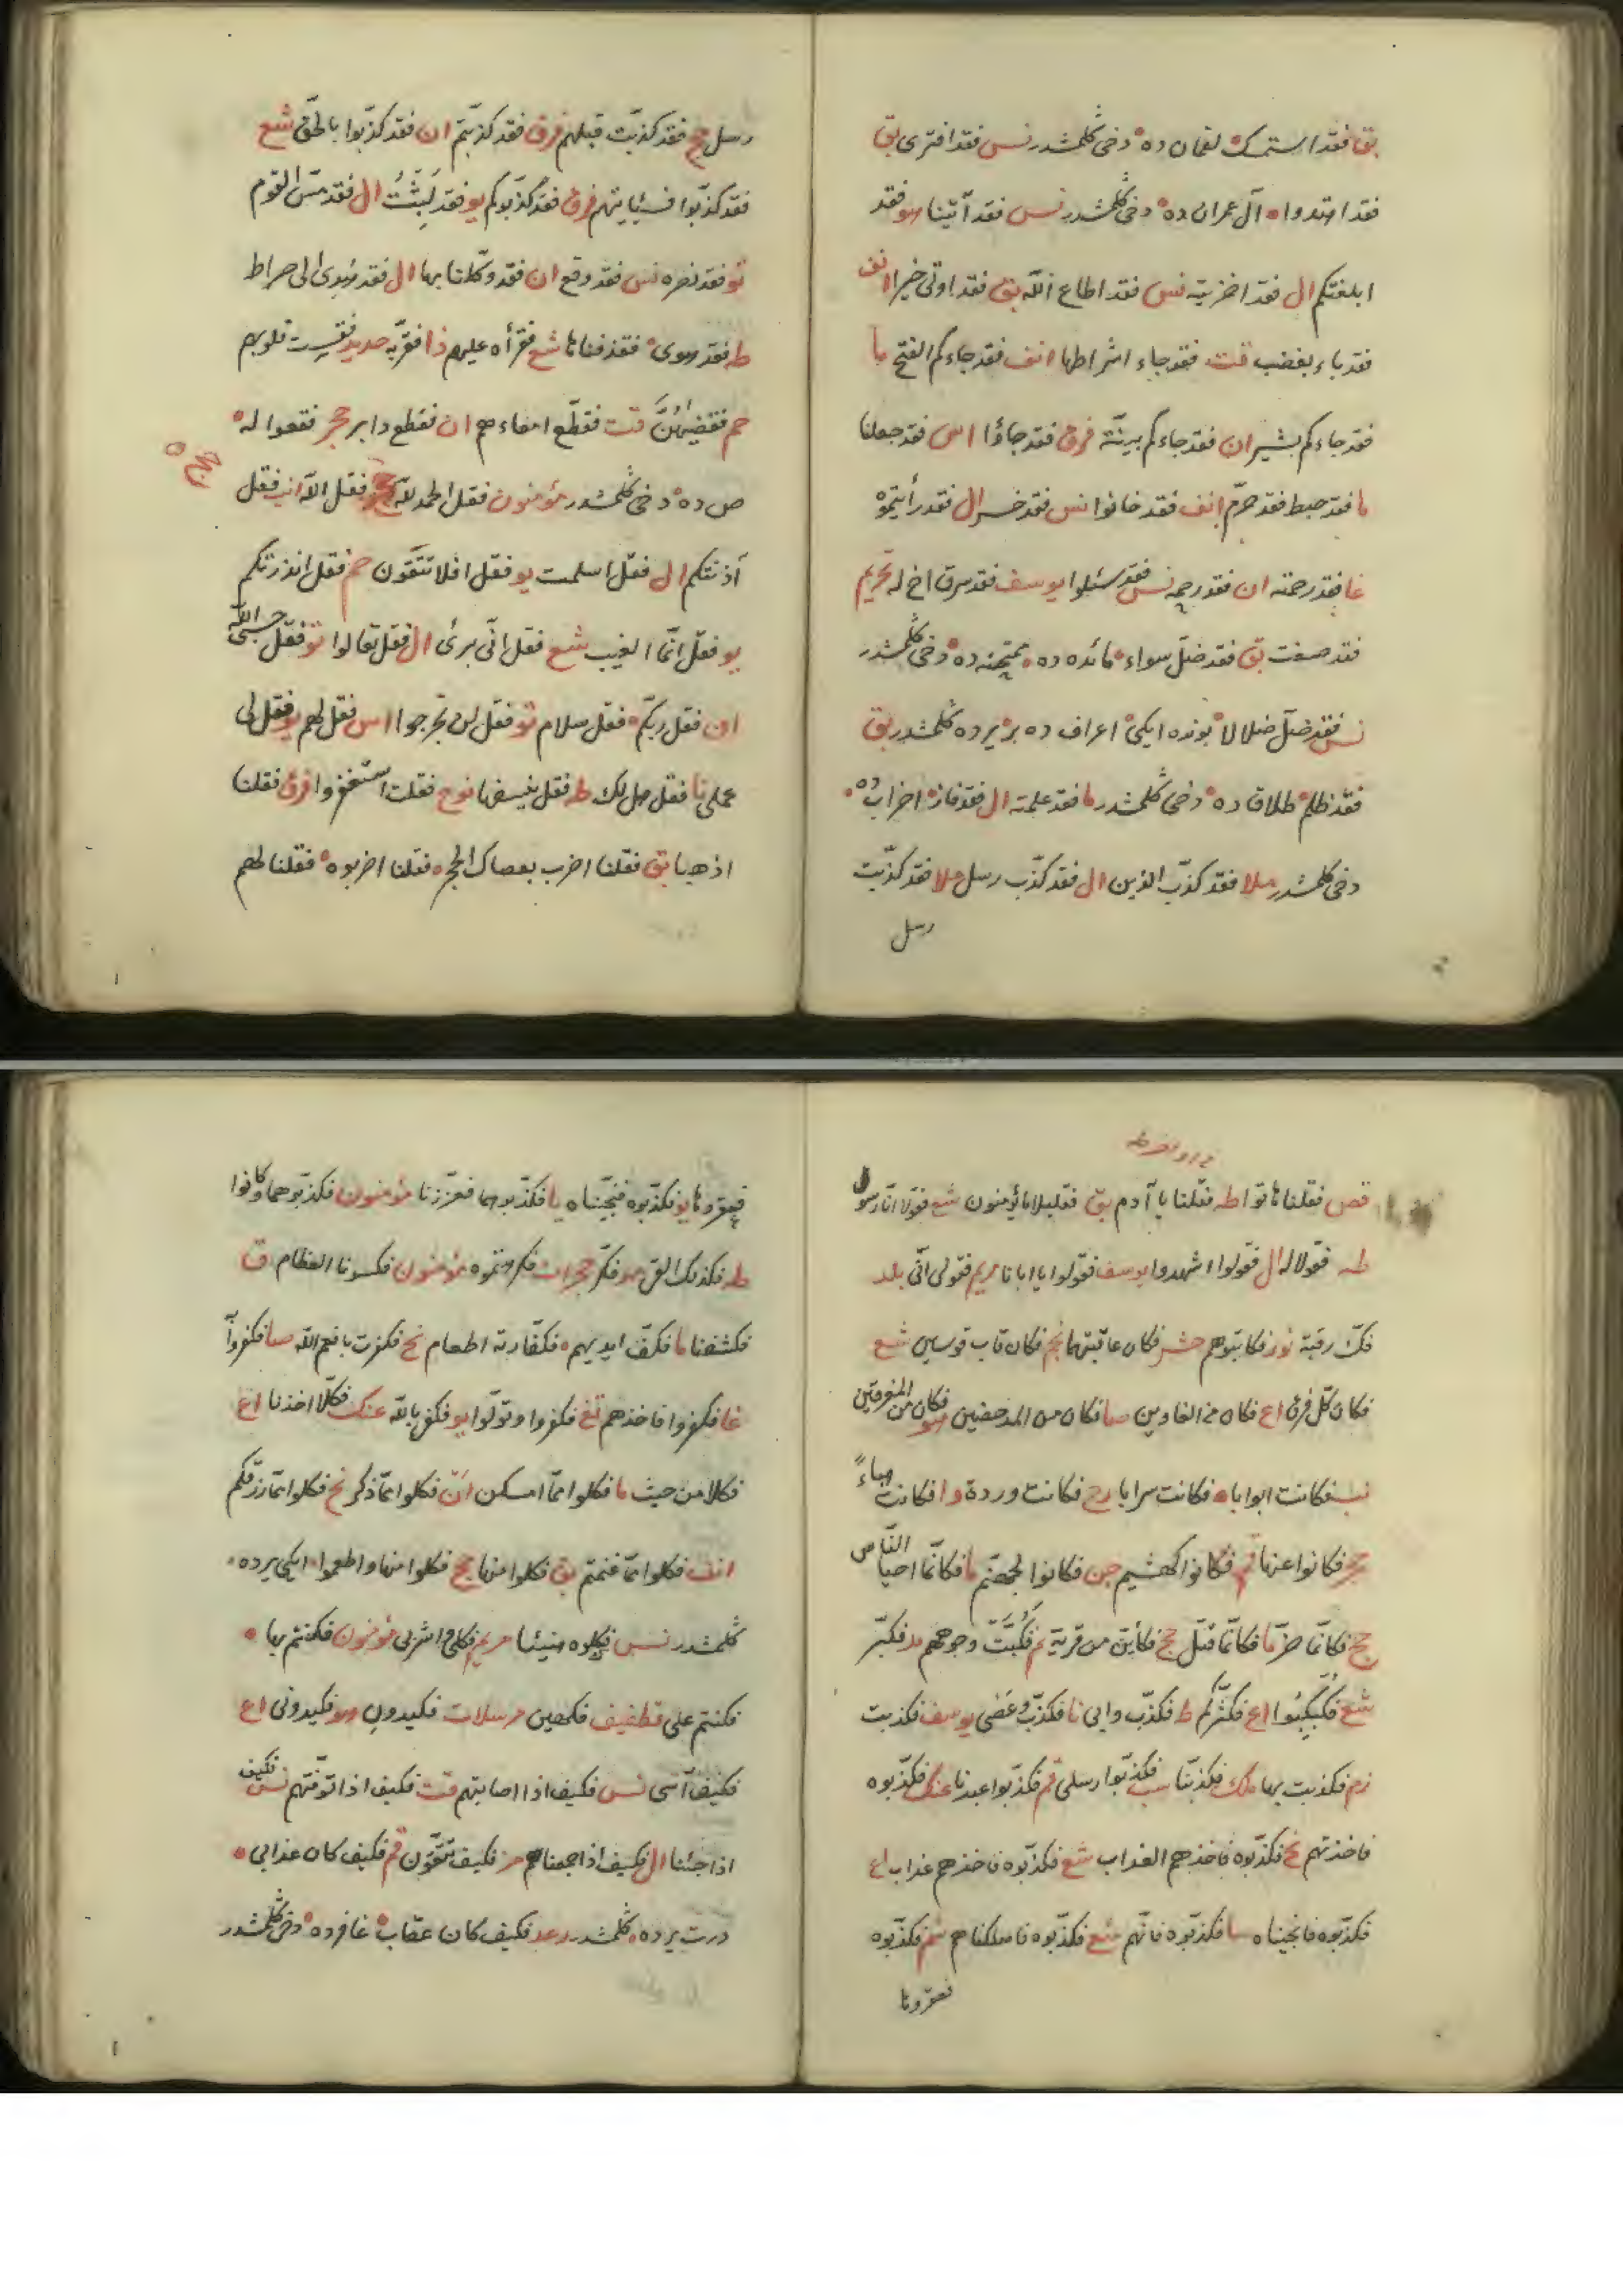 بق فقد استمسك لقمان ده دخى كلمشدر نس فقد افترى بق
فقد اهتدوا آل عمران ده دخى كلمشدر نس فقد آتينا هو فقد
ابلغتكم ال فقد اخزيته نس فقد اطاع الله بق فقد اوتى خيرا انف
فقد باء بغضب قت فقد جاء اشراطها انف فقد جاءكم الفتح ما
فقد جاءكم بشير ان فقد جاءكم بينة فرق فقد جاؤا اس فقد جعلنا
ما فقد حبط فقد حرم انف فقد خانوا نس فقد خسر ال فقد رأيتموه
غا فقد رحمته ان فقد رحمه نس فقد سئلوا يوسف فقد سرق اخ له تحريم
فقد صغت بق فقد ضل سواء مائده ده ممتحنه ده دخى كلمشدر
نس فقد ضل ضلالا بونده ايكى اعراف ده بر يرده كلمشدر بق
فقد ظلم طلاق ده دخى كلمشدر ما فقد علمته ال فقد فاز احزاب ده
دخى كلمشدر ملا فقد كذب الذين ال فقد كذب رسل ملا فقد كذبت
رسل
رسل حج فقد كذبت قبلهم فرق فقد كذبتم ان فقد كذبوا بالحق شع
فقد كذبوا فسيأتيهم فرق فقد كذبوكم يو فقد لبثت ال فقد مس القوم
تو فقد نصره نس فقد وقع ان فقد وكلنا بها ال فقد هدى الى صراط
طه فقد هوى فقذفناها شع فقرأه عليهم ذا فقربه حديد فقست قلوبهم
حم فقضيهن قت فقطع امعاءهم ان فقطع دابر حجر فقعوا له
ص ده دخى كلمشدر مؤمنون فقل الحمد لله فقل الله انب فقل
آذنتكم ال فقل اسلمت يو فقل افلا تتقون حم فقل انذرتكم
يو فقل انما الغيب شع فقل انى برئ ال فقل تعالوا تو فقل حسبى الله
ان فقل ربكم فقل سلام تو فقل لن تخرجوا اس فقل لهم يو فقل لى
عملى نا فقل هل لك طه فقل ينسفها نوح فقلت استغفروا فرق فقلنا
اذهبا بق فقلنا اضرب بعصاك الحجر فقلنا اضربوه فقلنا لهم
قص فقلنا هاتوا طه فقلنا يا آدم بق فقليلا ما يؤمنون شع فقولا انا رسول
طه فقولا له ال فقولوا اشهدوا يوسف فقولوا يا ابانا مريم فقولى انى بلد
فك رقبة نور فكاتبوهم حشر فكان عاقبتهما نجم فكان قاب قوسين شع
فكان كل فرق اع فكان من الغاوين صا فكان من المدحضين هو فكان من المغرقين
نب فكانت ابوابا فكانت سرابا رح فكانت وردة وا فكانت هباء
حجر فكانوا عنها قم فكانوا كهشيم جن فكانوا لجهنم ما فكانما احيا الناس
حج فكانما خر ما فكانما قتل حج فكأين من قرية نم فكبت وجوههم مد فكبر
شع فكبكبوا اع فكثركم ط فكذب وابى نا فكذب وعصى يوسف فكذبت
زم فكذبت بها ملك فكذبنا سب فكذبوا رسلى قم فكذبوا عبدنا عنك فكذبوه
فاخذتهم نح فكذبوه فاخذهم العذاب شع فكذبوه فاخذهم عذاب اع
فكذبوه فانجيناه صا فكذبوه فانهم شع فكذبوه فاهلكناهم شم فكذبوه
فعقروها
فعقروها يو فكذبوه فنجيناه يا فكذبوهما فعززنا مؤمنون فكذبوهما وكانوا
طه فكذلك القى حجرات فكرهتموه مؤمنون فكسونا العظام ق
فكشفنا ما فكف ايديهم فكفارته اطعام نح فكفرت بانعم الله صا فكفروا
غا فكفروا فاخذهم تغ فكفروا وتولوا يو فكفى بالله عنك فكلا اخذنا اع
فكلا من حيث ما فكلوا مما امسكن ان فكلوا مما ذكر نح فكلوا مما رزقكم
انف فكلوا مما غنمتم بق فكلوا منها حج فكلوا منها واطعموا ايكى يرده
كلمشدر نس فكلوه هنيئا مريم فكلى واشربى مؤمنون فكنتم بها
فكنتم على قطفيف فكهين مرسلات فكيدون هو فكيدونى اع
فكيف آسى نس فكيف اذا اصابتهم قت فكيف اذا توفتهم نس فكيف
اذا جئنا ال فكيف اذا جمعناهم مز فكيف تتقون قم فكيف كان عذابى
درت يرده كلمشدر رعد فكيف كان عقاب غافر ده دخى كلمشدر